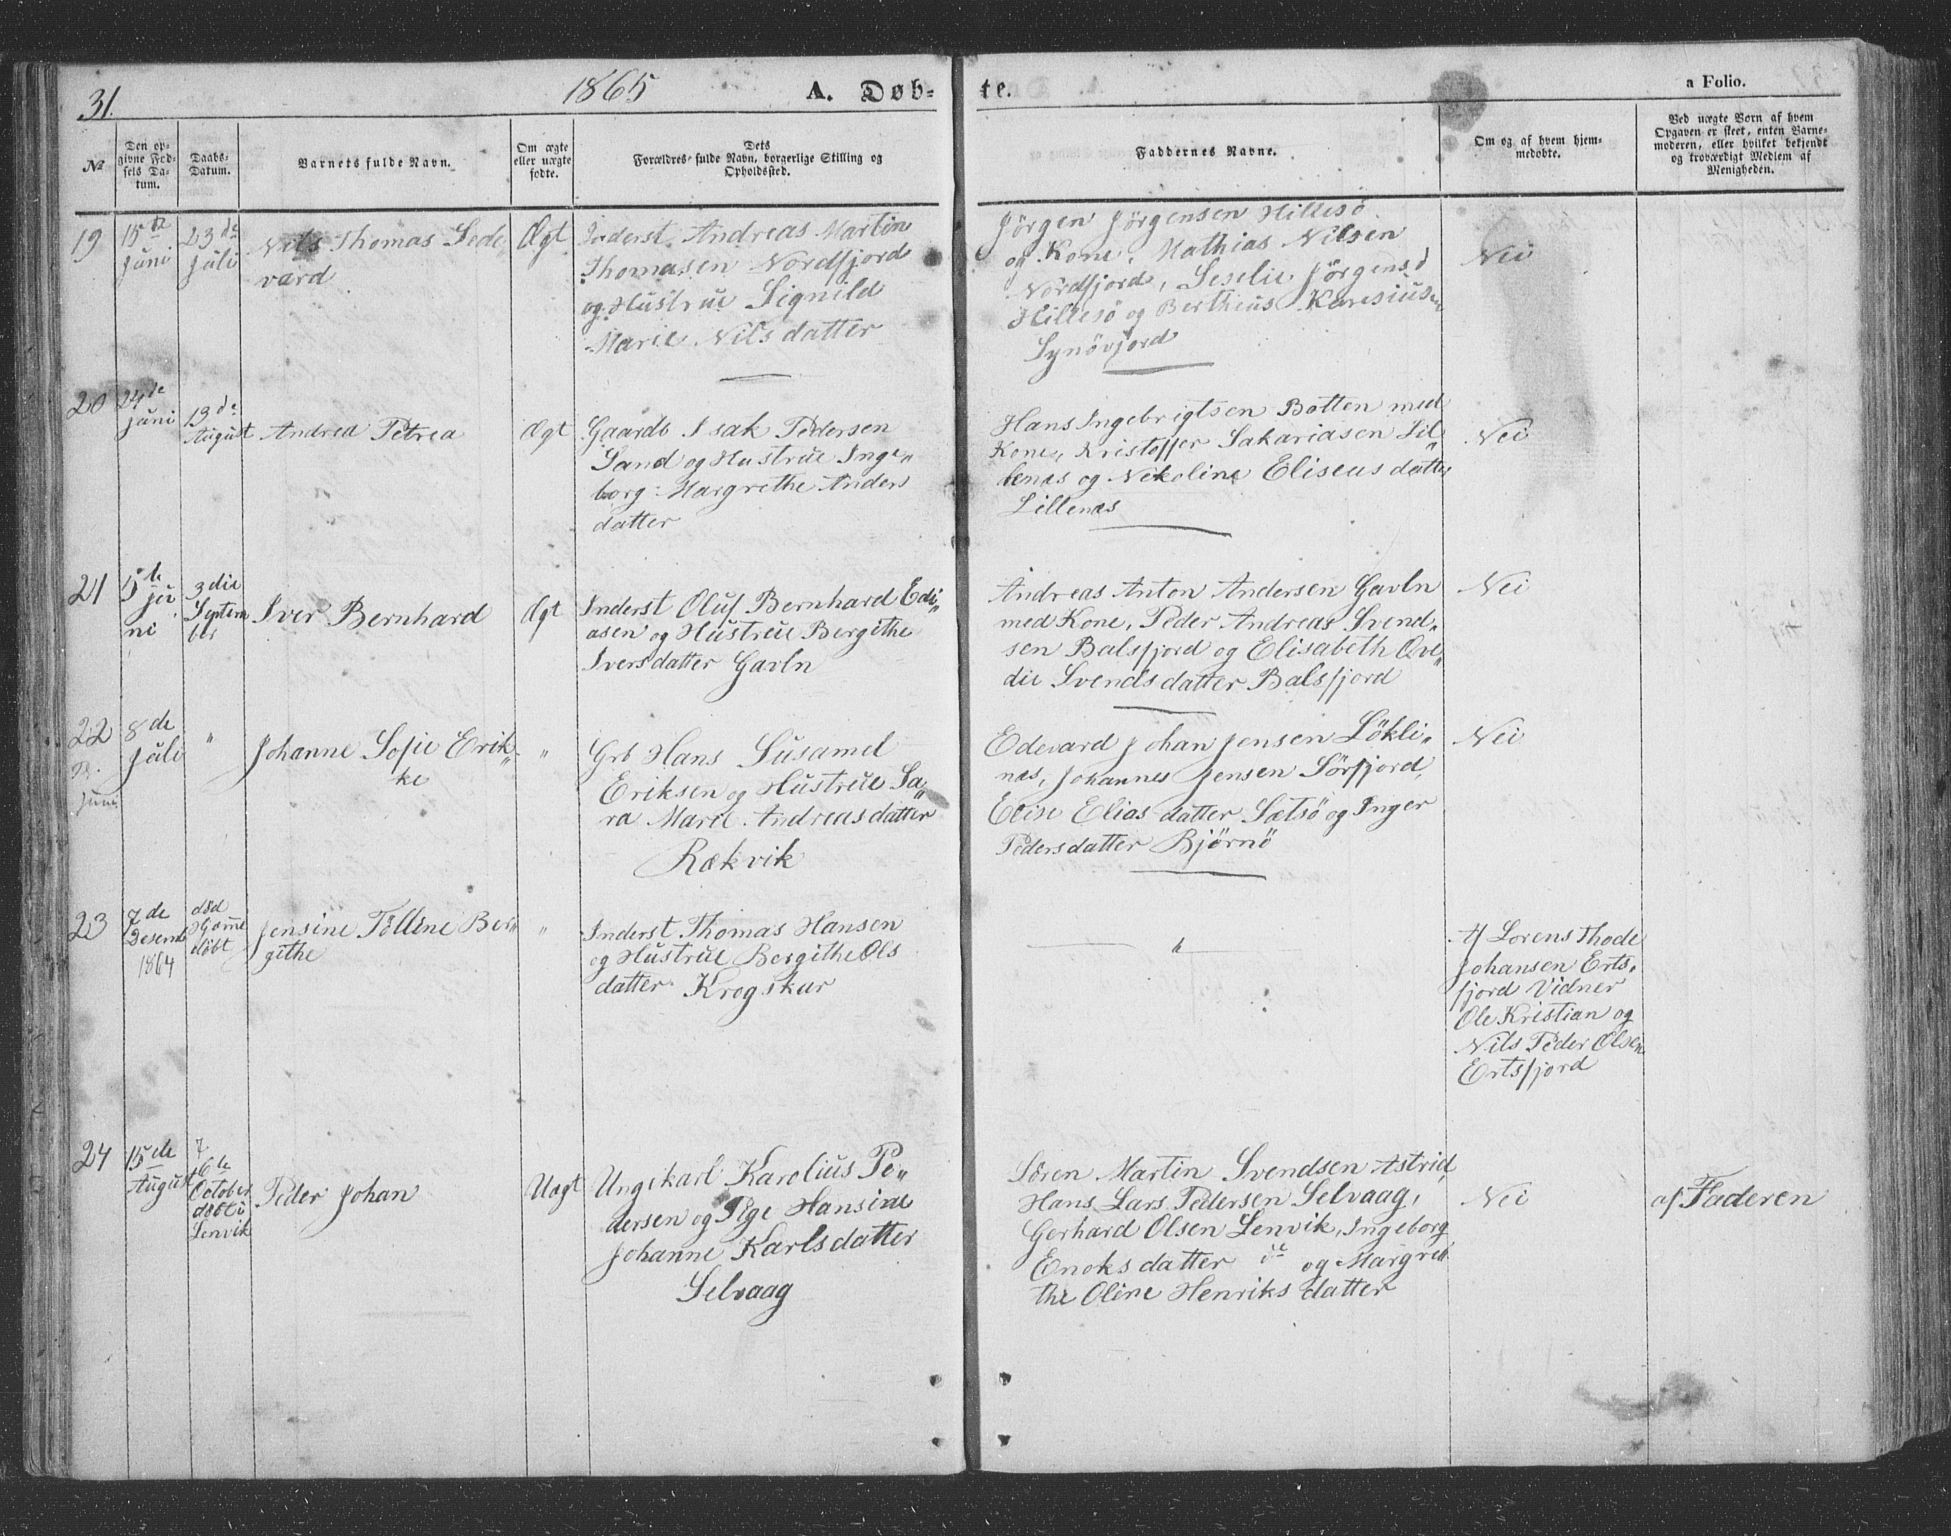 31.
1865
A. Døb-
te.
a Folio.
No
Den op-
givne Fød-
sels Da-
tum.
Daabs-
Datum.
Barnets fulde Navn.
Om ægte
eller uægte
fødte.
Dets
Forældres fulde Navn, borgerlige Stilling og
Opholdssted.
Faddernes Navne.
Om og af hvem hjem-
medøbte.
Ved uægte Børn af hvem
Opgaven er skeet, enten Barne-
moderen, eller hvilket bekjendt
og troværdigt Medlem af
Menigheden.
19
15de
Juni
23de
Juli
Nils Thomas Sede
vard
Ægt
Inderst. Andreas Martin
Thomasen Nordfjord
og Hustrue Signild
Marie Nilsdatter
Jörgen Jörgensen Hillesö
og Kone, Mathias Nilsen
Nordfjord, Seselie Jörgensd
Hillesö og Bertheus
Synövjord
Nei
20
24de
juni
13de
August
Andrea Petrea
Ægt
Gaardb Isak Pedersen
Sand og Hustrue Inge„
borg Margrethe Anders
datter
Hans Ingebrigtsen Botten med
Kone, Kristoffer Sakariasen Lil„
lenæs og Nekoline Eliseusdatter
Lillenæs
Nei
21
5te
ju
ni
3die
Septem
ber
Iver Bernhard
Ægt
Inderst Oluf Bernhard Edi„
asen og Hustrue Bergithe
Iversdatter Gavln
Andreas Anton Andersen Gavln
med Kone, Peder Andreas Svend„
sen Balsfjord og Elisabeth Ove„
die Svendsdatter Balsfjord
Nei
22
juni
8de
Juli
„
Johanne Sofie Erik„
ke
„
Grb Hans Susamel
Eriksen og Hustrue Sa„
ra Marie Andreasdatter
Rækvik
Edevard Johan Jensen Lökli„
næs, Johannes Jensen Sörfjord,
Elise Eliasdatter Sætsö og Inger
Pedersdatter Bjørnö
Nei
23
7de
Desemb
1864
død
Hjemme
døbt
Jensine Tolline Ber„
githe
„
Inderst Thomas Hansen
og Hustrue Bergithe Ols
datter Krogskar
„
Af Lorens Thode
Johansen Erts„
fjord Vidner
Ole Kristian og
Nils Peder Olsen
Ertsfjord
24
15de
August
7.
16de
October
døbt i
Lenvik
Peder Johan
Uægt
Ungekarl Karolius Pe„
dersen og Pige Hansine
Johanne Karlsdatter
Selvaag
Sören Martin Svendsen Astrid,
Hans Lars Pedersen Selvaag,
Gerhard Olsen Lenvik, Ingeborg
Enoksdatter de og Margre„
the Oline Henriksdatter
Nei
af Faderen